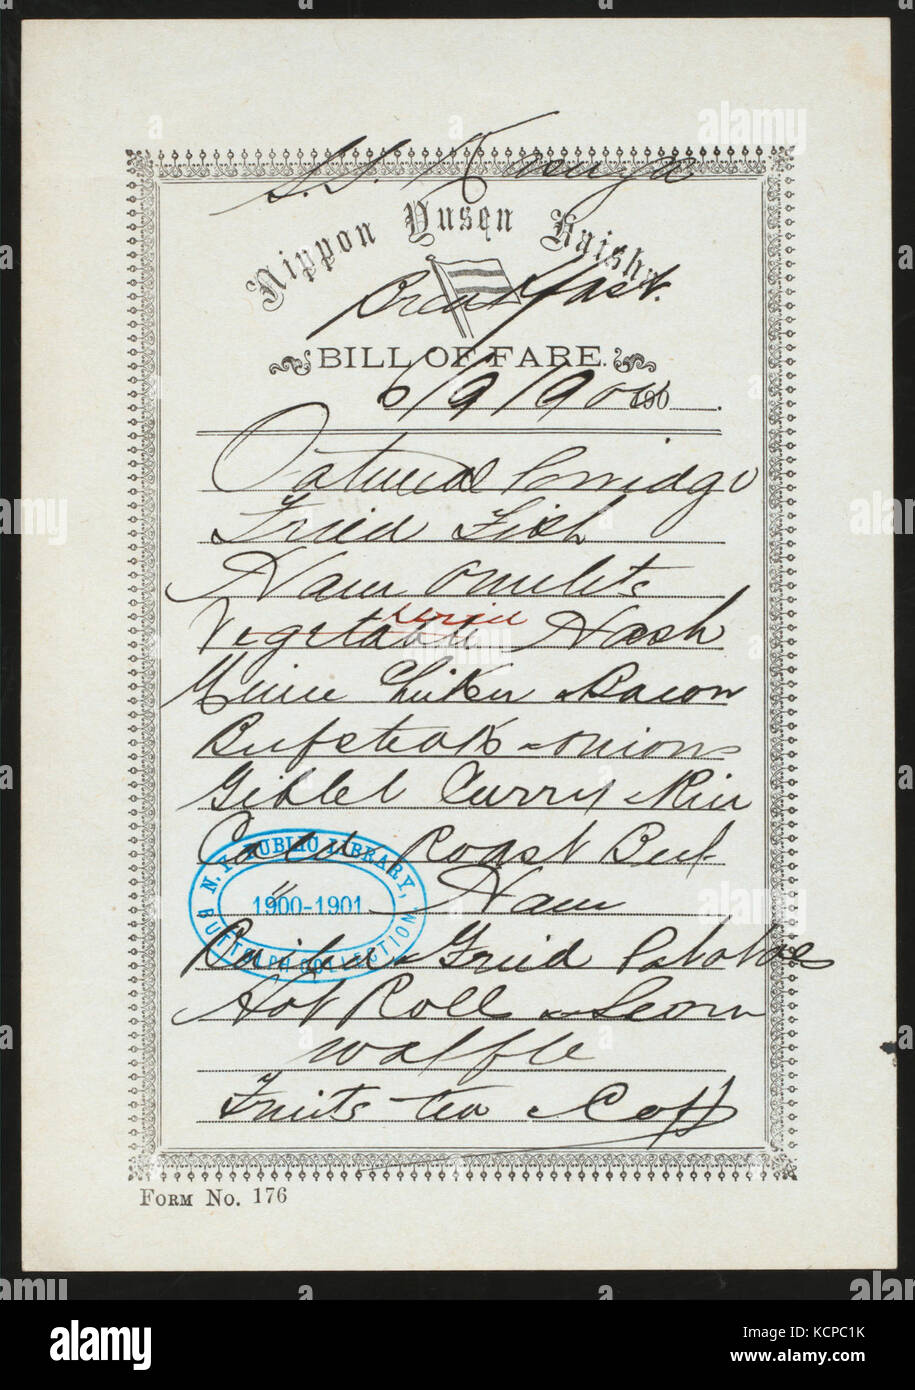 S.S. Kasuga
Nippon Yusen Kaisha
Breakfast.
BILL OF FARE.
6/9/900 190
Oatmeal Porridge
Fried Fish
Ham Omelets
Vegetable Hash
Mince Chicken & Bacon
Beefsteak & onions
Giblet Curry & Rice
Cold Roast Beef
" Ham
Boiled & Fried Potatoes
Hot Roll & Scorn
Waffle
Fruits tea & Coff
N.Y. PUBLIC LIBRARY,
1900-1901
BUTTOLPH COLLECTION
FORM No. 176
alamy
Image ID: KCPC1K
www.alamy.com